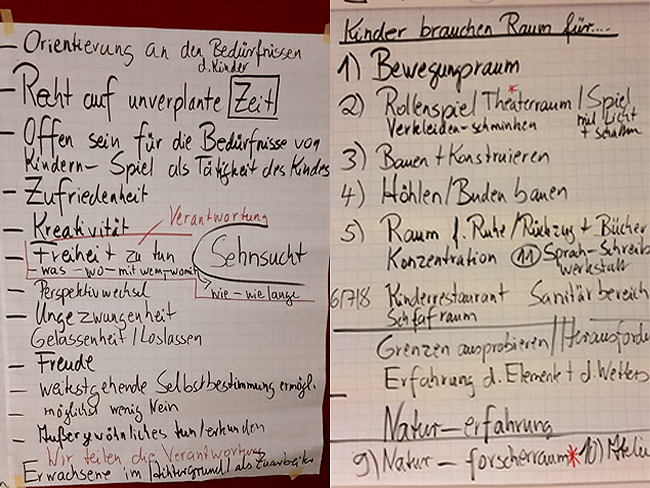 - Orientierung an den Bedürfnissen
d. Kinder
- Recht auf unverplante Zeit
- Offen sein für die Bedürfnisse von
Kindern - Spiel als Tätigkeit des Kindes
- Zufriedenheit
Verantwortung
- Kreativität
- Freiheit zu tun
- was - wo - mit wem - womit
Sehnsucht
wie - wie lange
- Perspektivwechsel
- Ungezwungenheit
Gelassenheit / Loslassen
- Freude
- weitestgehende Selbstbestimmung ermögl.
- möglichst wenig Nein
- Außergewöhnliches tun/erkunden
Wir teilen die Verantwortung
Erwachsene im Hintergrund / als Zuarbeiter
Kinder brauchen Raum für....
1) Bewegungsraum
2) Rollenspiel Theaterraum / Spiel
Verkleiden - schminken mit Licht
+ Schatten
3) Bauen + Konstruieren
4) Höhlen / Buden bauen
5) Raum f. Ruhe / Rückzug + Bücher
Konzentration 11 Sprach - Schreib
werkstatt
6/7/8 Kinderrestaurant Sanitärbereich
Schlafraum
Grenzen ausprobieren / Herausford
Erfahrung d. Elemente + d. Wetters
Natur - erfahrung
9) Natur - forscherraum * 10) Atelie